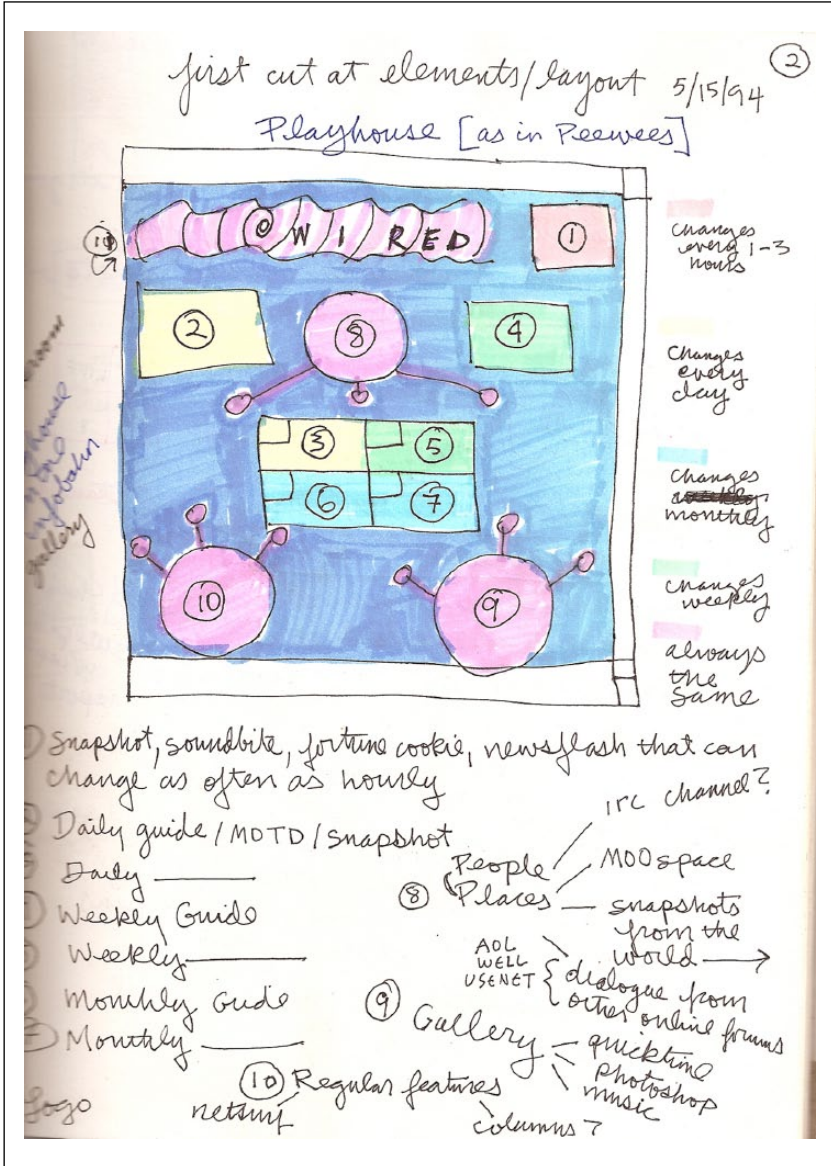 2
first cut at elements/layout 5/15/94
Playhouse [as in Peewees]
@ W I R E D
1
2
8
4
3
5
6
7
10
9
changes
every 1-3
hours
changes
every
day
changes
monthly
changes
weekly
always
the
same
infobahn
gallery
1 Snapshot, soundbite, fortune cookie, newsflash that can
change as often as hourly
Daily guide / MOTD / snapshot
Daily
Weekly Guide
Weekly
Monthly Guide
7 Monthly
Logo
8 People
Places
irc channel?
MOOspace
snapshots
from the
world
AOL
WELL
USENET
dialogue from
other online forums
9 Gallery
quicktime
photoshop
music
10 Regular features
netsurf
columns?